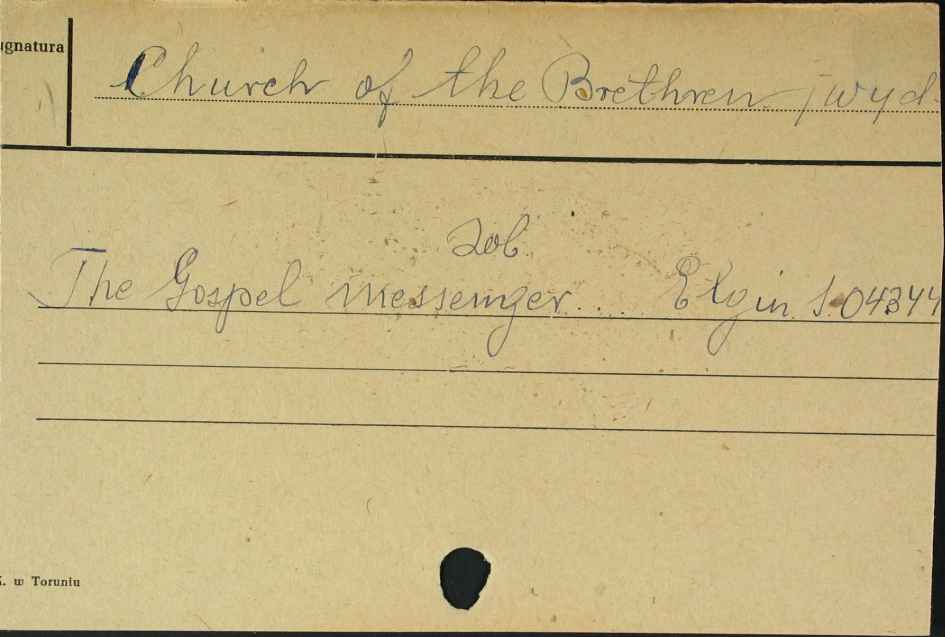 ygnatura
Church of the Brethren; wyd.
zob.
The Gospel messenger... Elgin S.04344
K. w Toruniu